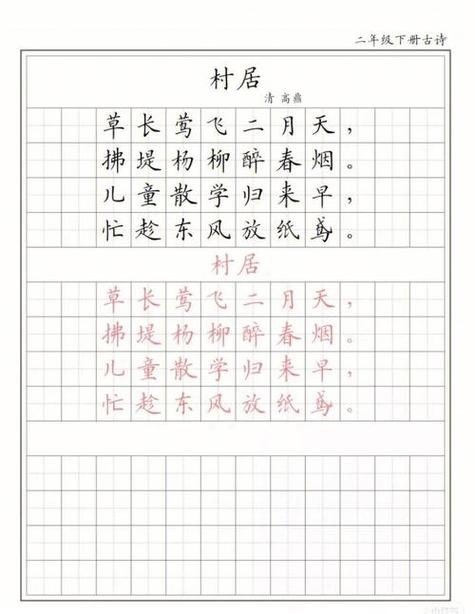 二年级下册古诗
村居
清 高鼎
草长莺飞二月天，
拂堤杨柳醉春烟。
儿童散学归来早，
忙趁东风放纸鸢。
村居
草长莺飞二月天，
拂堤杨柳醉春烟。
儿童散学归来早，
忙趁东风放纸鸢。